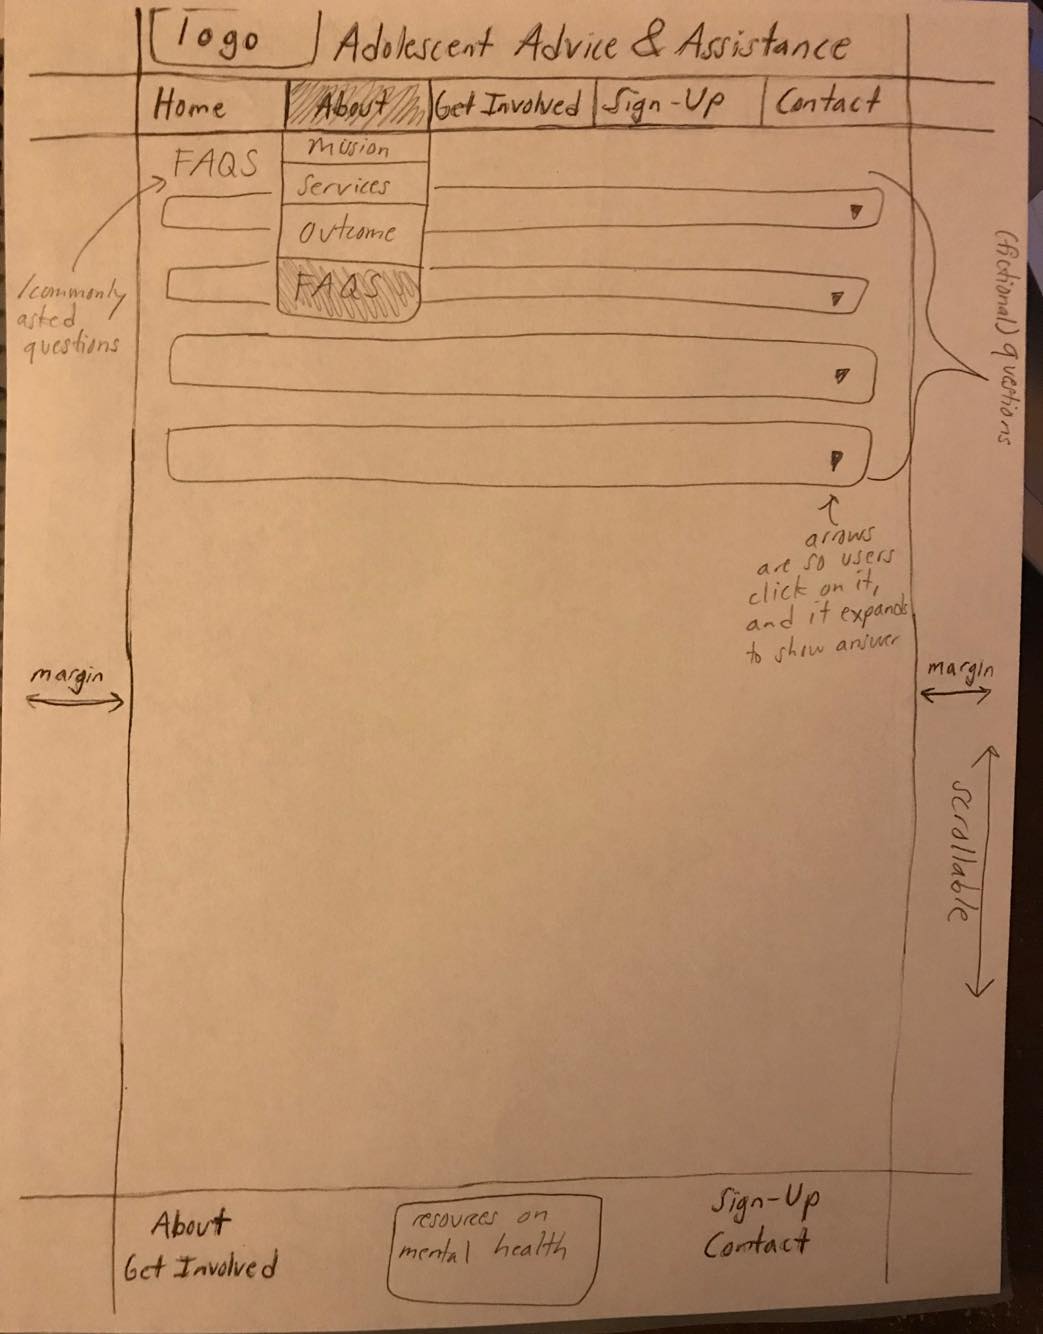 logo
Adolescent Advice & Assistance
Home
About
Get Involved
Sign-Up
Contact
FAQS
Mission
Services
Outcome
FAQS
/commonly
asked
questions
(fictional) questions
arrows
are so users
click on it,
and it expands
to show answer
margin
margin
scrollable
About
Get Involved
resources on
mental health
Sign-Up
Contact